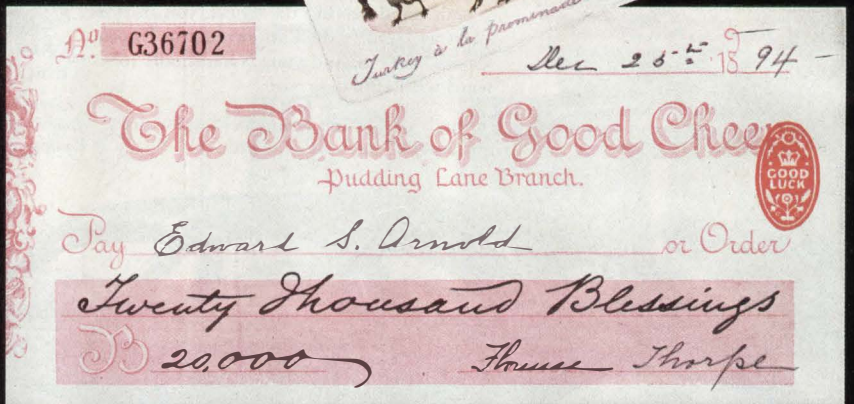 Turkey à la promenade
No G36702
Dec 25th 1894
The Bank of Good Cheer
Pudding Lane Branch.
GOOD
LUCK
Pay Edward S. Arnold or Order
Twenty Thousand Blessings
B 20,000 Thorpe